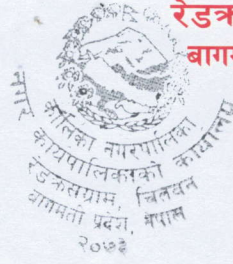 रेडक्र
बागम
कालिका नगरपालिका
नगर कार्यपालिकाको कार्यालय
रेडक्रसग्राम, चितवन
बागमती प्रदेश, नेपाल
२०७३